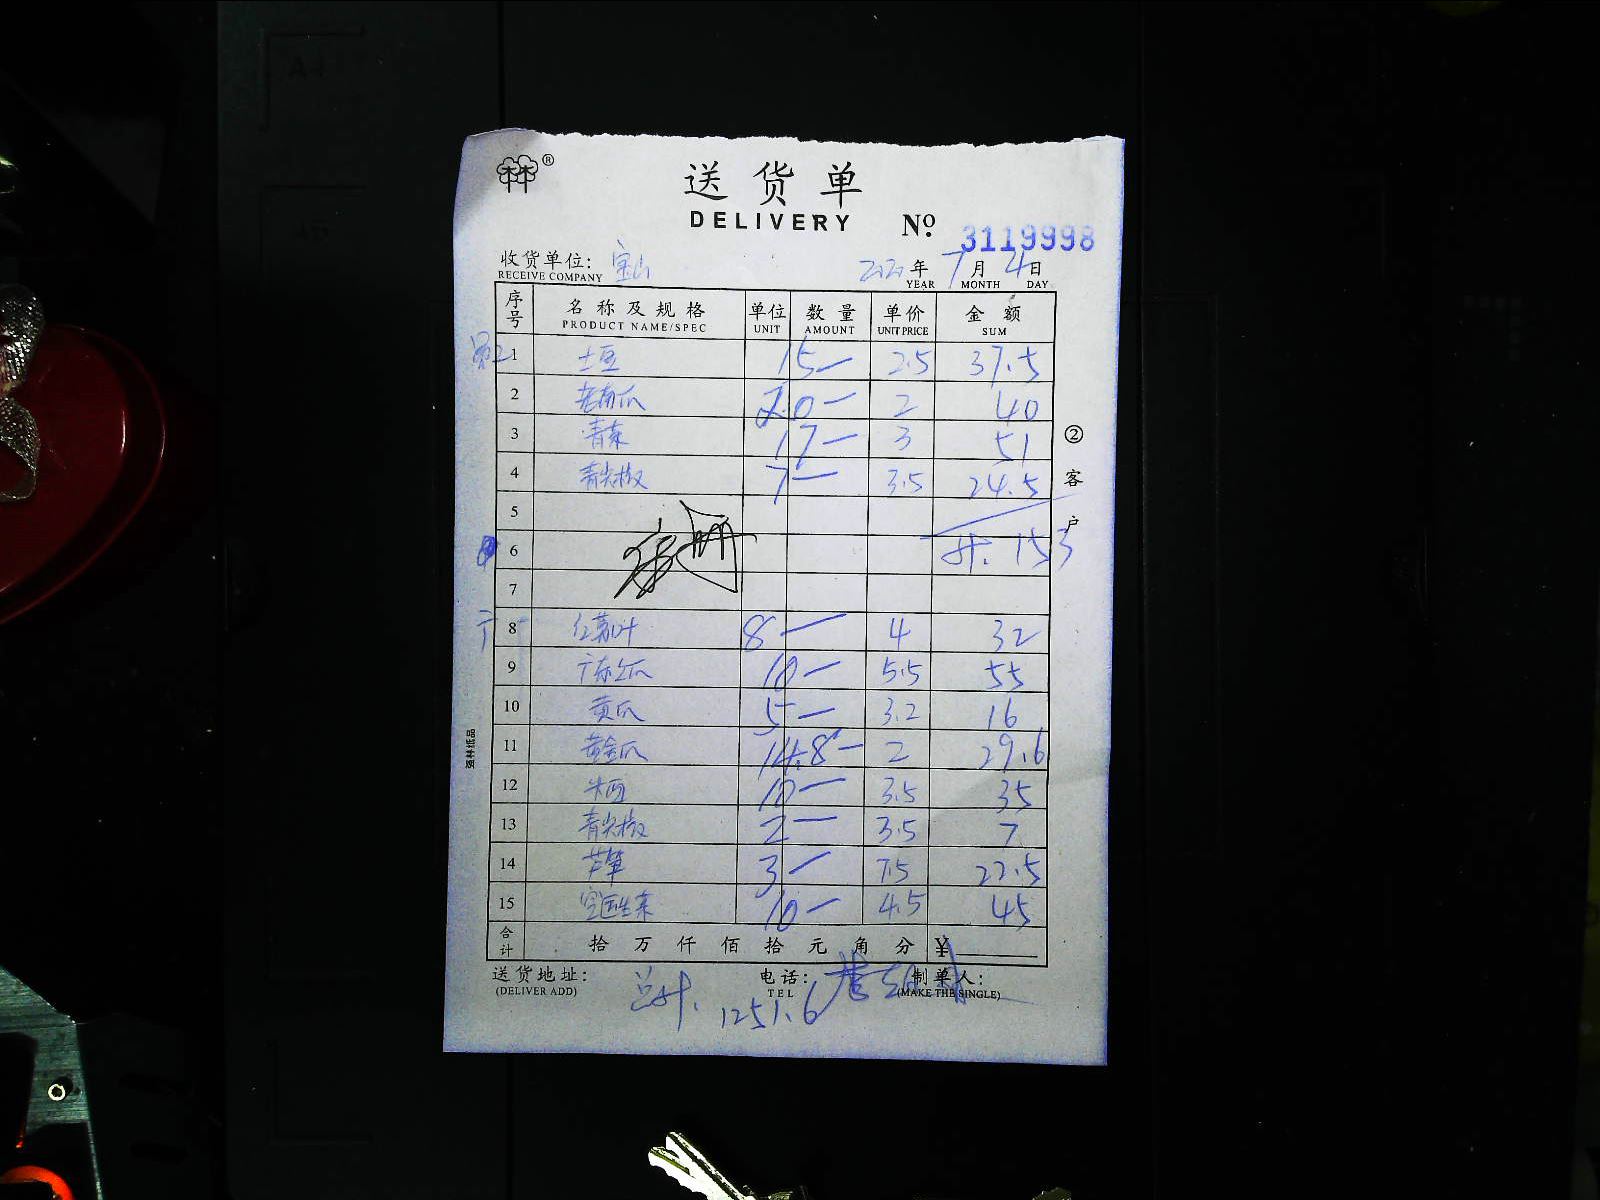 林®
送货单
DELIVERY
No. 3119998
收货单位: 宝山
RECEIVE COMPANY
2020年 7月 4日
YEAR MONTH DAY
序号 名称及规格 单位 数量 单价 金额
PRODUCT NAME/SPEC UNIT AMOUNT UNIT PRICE SUM
1 土豆 15— 2.5 37.5
2 老南瓜 20— 2 40
3 青菜 17— 3 51
4 青尖椒 7— 3.5 24.5
5
6 计. 153
7
8 红苋叶 8— 4 32
9 10— 5.5 55
10 黄瓜 5— 3.2 16
11 黄金瓜 14.8— 2 29.6
12 10— 3.5 35
13 青尖椒 2— 3.5 7
14 芦笋 3— 7.5 22.5
15 10— 4.5 45
合计 拾 万 仟 佰 拾 元 角 分 ¥
②客户
强林纸品
送货地址: 电话: 制单人:
(DELIVER ADD) TEL (MAKE THE SINGLE)
总计. 1251.6